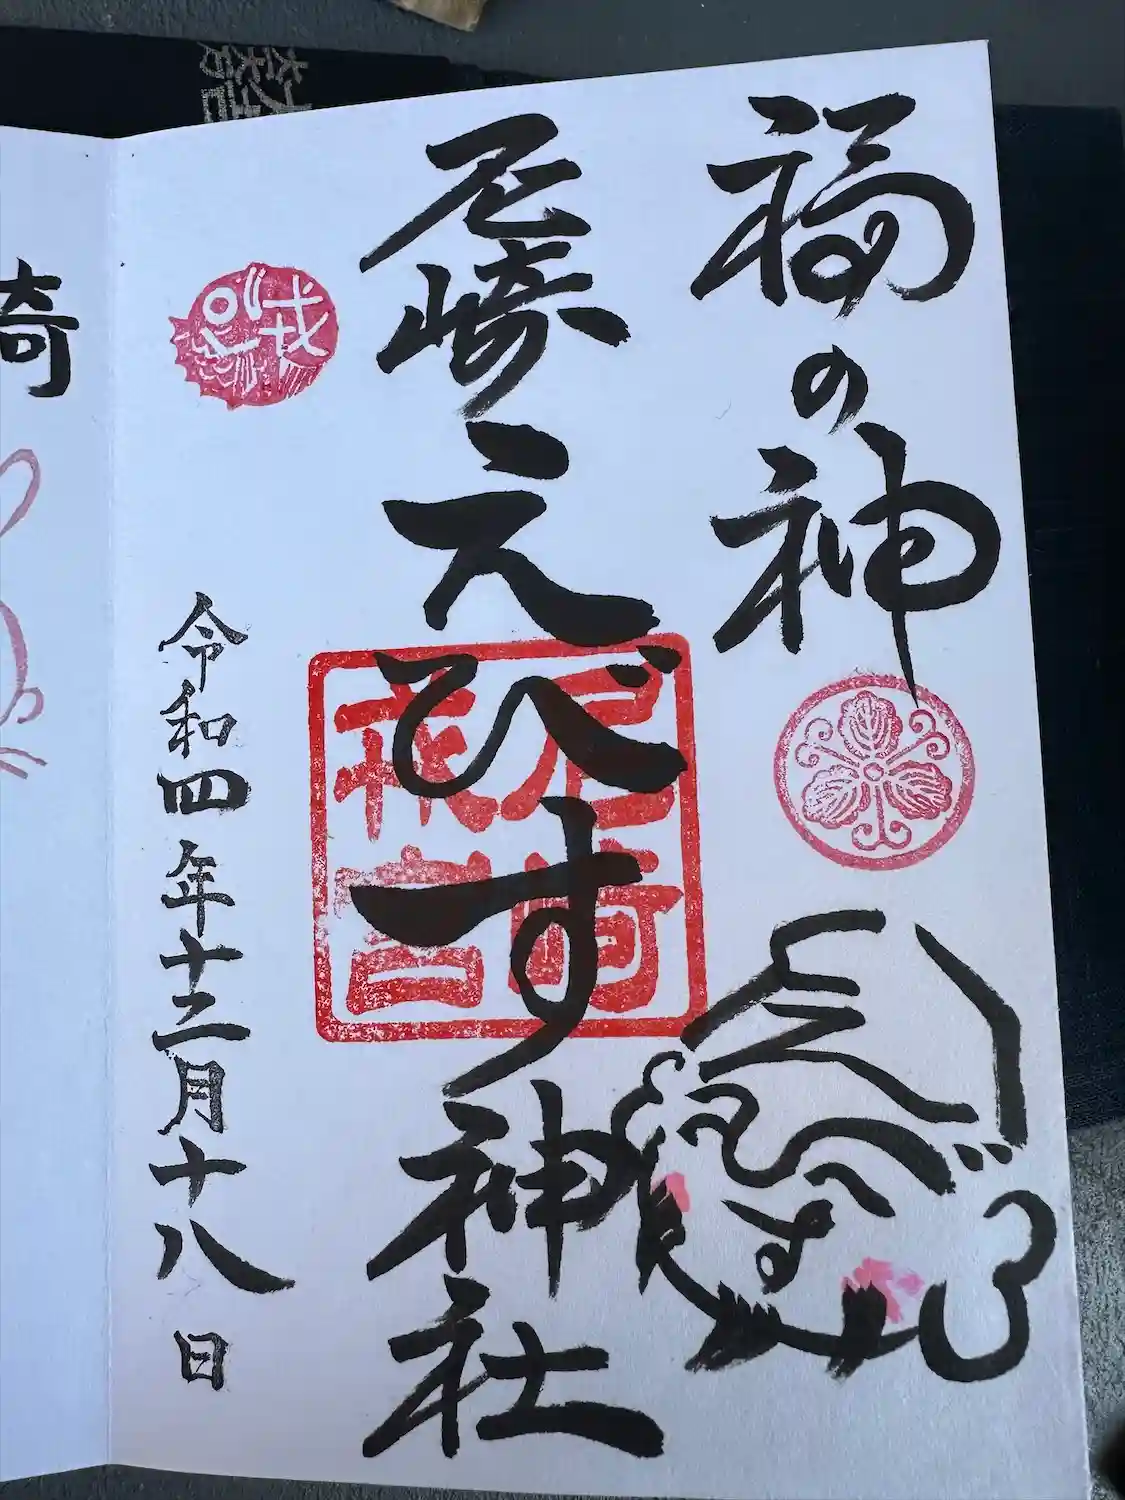 福の神
えびす
尼崎えびす神社
尼崎戎宮
戎
令和四年十二月十八日
崎